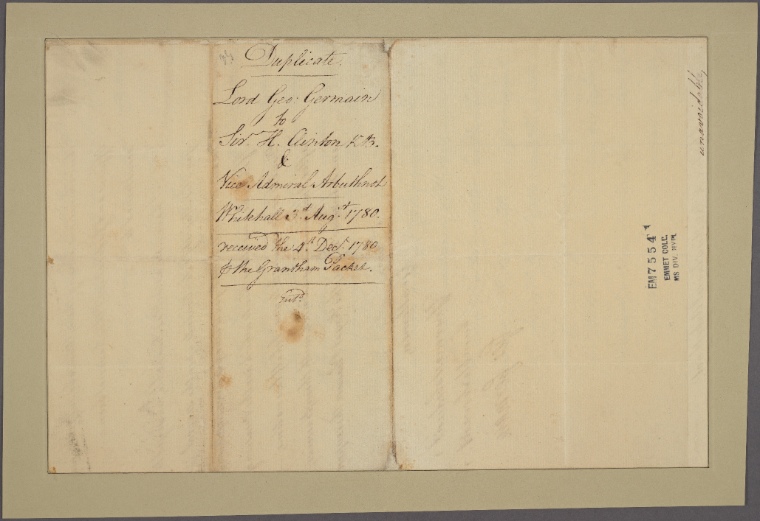 Duplicate.
Lord Geo: Germain
to
Sir H. Clinton K.B.
&
Vice Admiral Arbuthnot
Whitehall 3d Augst. 1780.
received the 4th Decr. 1780
the Grantham Packet.
unavoidably
EM7554
EMMET COLL.
MS DIV. NYPL